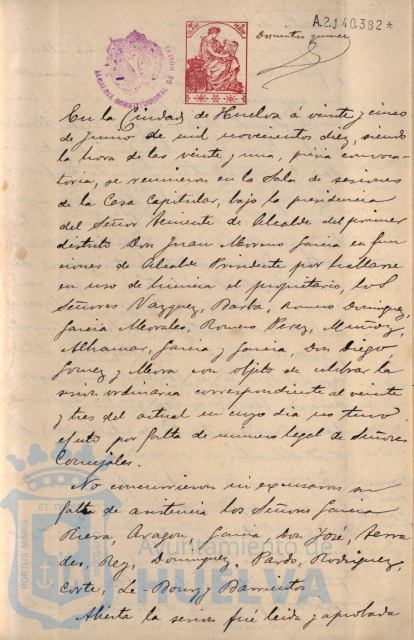 A.2.140.392*
Doscientos quince
ALCALDIA CONSTITUCIONAL DE HUELVA
En la Ciudad de Huelva á veinte y cinco
de Junio de mil novecientos diez, siendo
la hora de las veinte y una, prévia convoca-
toria, se reunieron en la Sala de sesiones
de la Casa Capitular, bajo la presidencia
del Señor Teniente de Alcalde del primer
distrito Don Juan Moreno García en fun-
ciones de Alcalde Presidente por hallarse
en uso de licencia el propietario, los
Señores Vazquez, Barba, Romero Dominguez,
García Morales, Romero Perez, Muñoz,
Alhamar, García y García, Don Diego
Gomez y Mora con objeto de celebrar la
sesion ordinaria correspondiente al veinte
y tres del actual en cuyo dia no tuvo
efecto por falta de numero legal de Señores
Concejales.
No concurrieron ni excusaron su
falta de asistencia los Señores Garcia
Riera, Aragon, Garcia Don José, Terra
des, Rey, Dominguez, Pardo, Rodriguez,
Corte, Le-Bourg y Barrientos
Abierta la sesion fué leida y aprobada
PORTUS MARIS ET TERRAE CUSTODIA
Ayuntamiento de
HUELVA